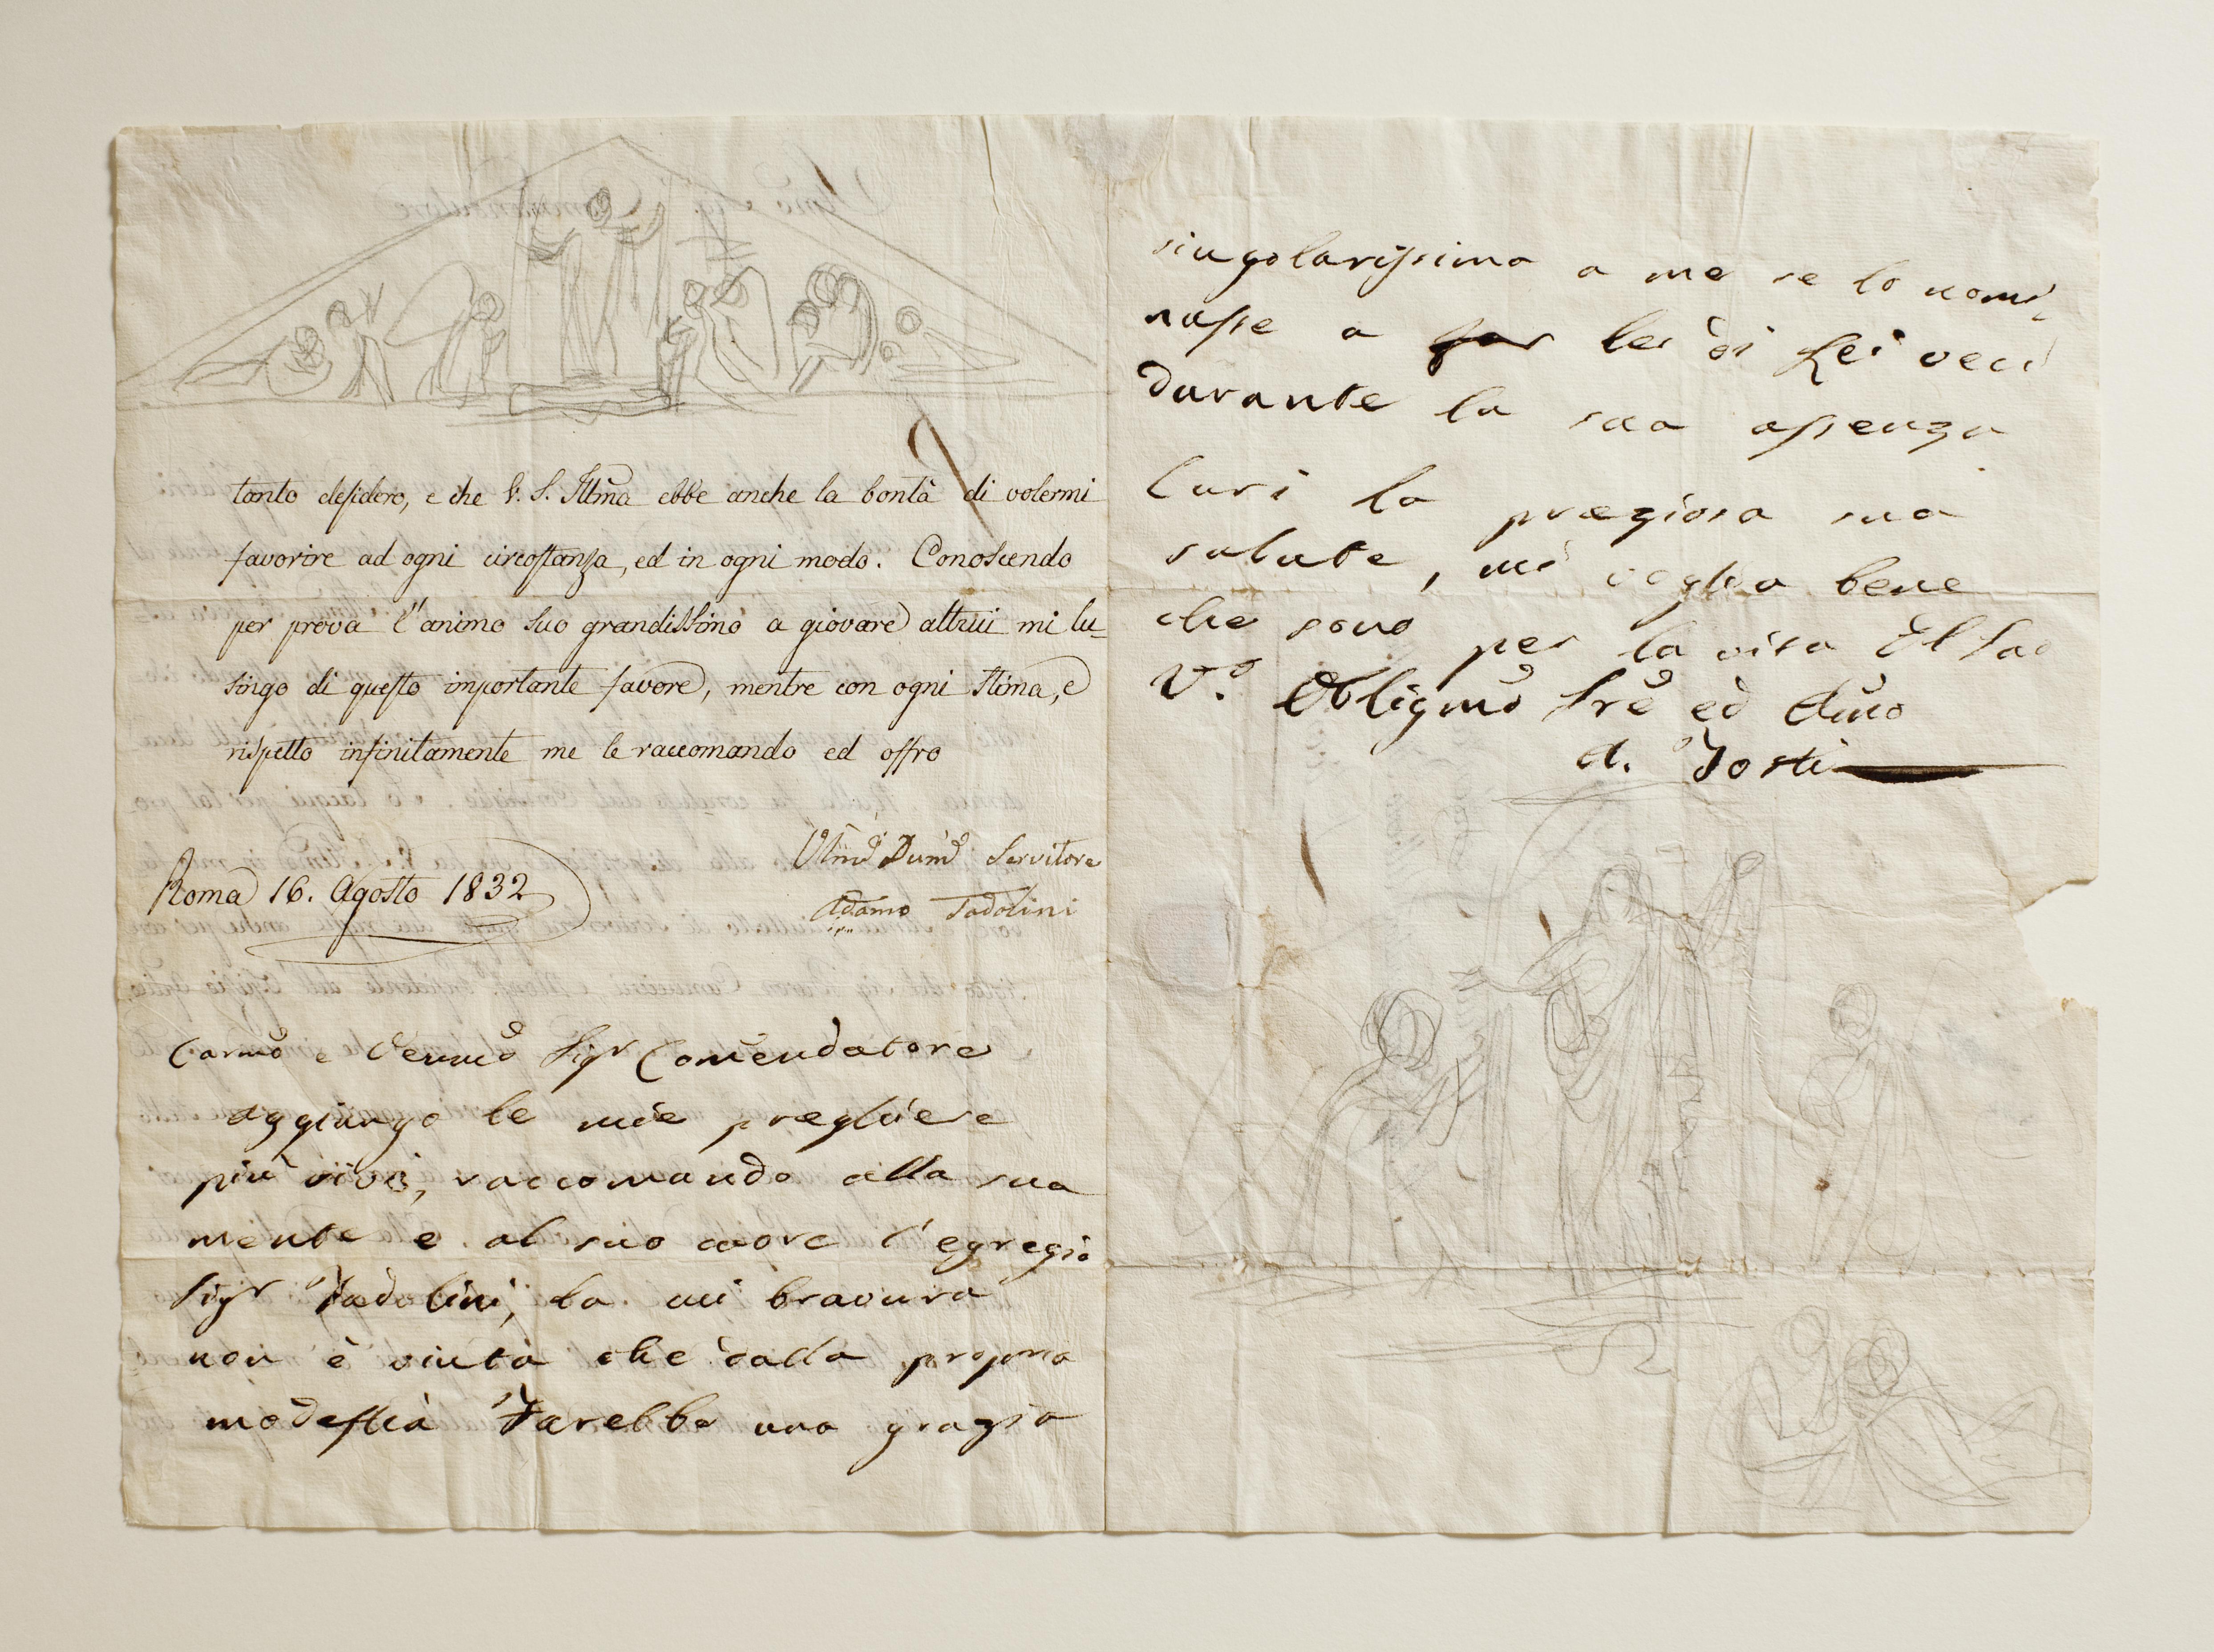 tanto desidero, e che V. S. Illma ebbe anche la bontà di volermi
favorire ad ogni circostanza, ed in ogni modo. Conoscendo
per prova l'animo suo grandissimo a giovare altrui mi lu=
singo di questo importante favore, mentre con ogni stima, e
rispetto infinitamente me le raccomando ed offro
Servitore
Adamo Tadolini
Roma 16. Agosto 1832
Carmo e Venmo Sigr Comendatore
Aggiungo le mie preghiere
più vive, raccomando alla sua
mente e al suo cuore l'egregio
Sigr Tadolini, la cui bravura
non è vinta che dalla propria
modestia Farebbe una grazia
singolarissima a me se lo nomi
nasse a far lei di Lei veci
durante la sua assenza
Curi la preziosa sua
salute, mi voglia bene
che sono per la vita Il suo
Vo Obligmo Sre ed Amo
A. Tosti